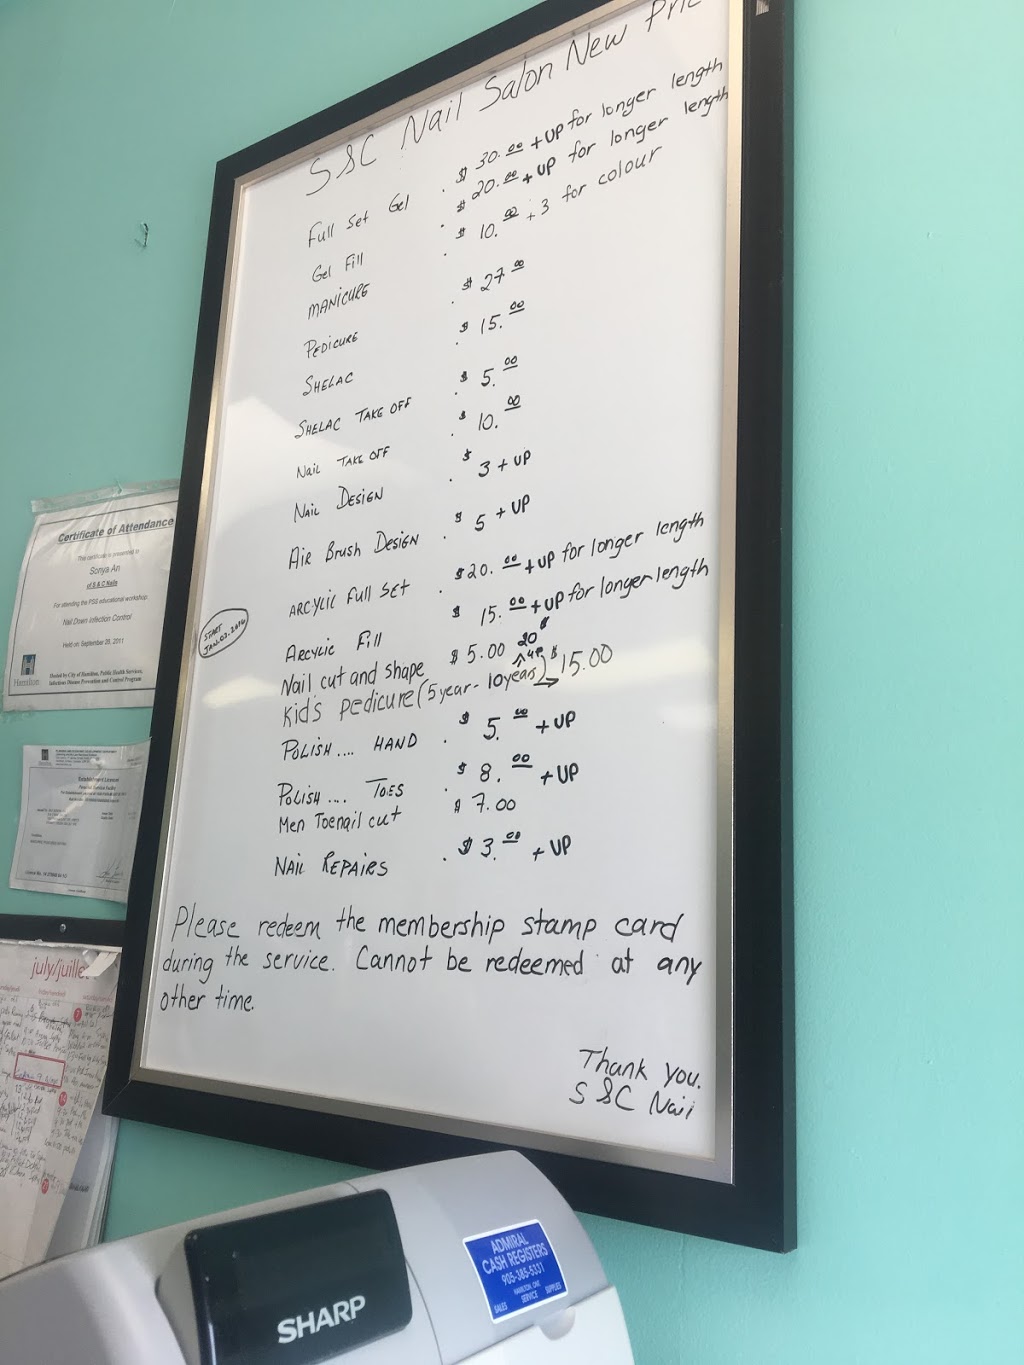 S&C Nail Salon New Pric
Full Set Gel . $30.00 + UP for longer length
Gel Fill . $20.00 + UP for longer length
MANICURE . $10.00 + 3 for colour
PEDICURE . $27.00
SHELAC . $15.00
SHELAC TAKE OFF . $5.00
Nail TAKE OFF . $10.00
NAIL DESIGN . $3 + UP
AIR BRUSH DESIGN . $5 + UP
ARCYLIC FULL SET . $20.00 + UP for longer length
START
JAN.02.2016
ARCYLIC Fill $15.00 + UP for longer length
Nail cut and shape $5.00
Kid's pedicure (5year - 10years) → $15.00
$20
POLISH.... HAND . $5.00 + UP
POLISH.... TOES . $8.00 + UP
Men Toenail cut $7.00
NAIL REPAIRS . $3.00 + UP
Please redeem the membership stamp card
during the service. Cannot be redeemed at any
other time.
Thank you.
S&C Nail
Certificate of Attendance
This certificate is presented to
Sonya An
of S & C Nails
For attending the PSS educational workshop,
Nail Down Infection Control
Held on: September 26, 2011
Hamilton
Hosted by City of Hamilton, Public Health Services,
Infectious Disease Prevention and Control Program
Establishment Licence
july/juillet
SHARP
ADMIRAL
CASH REGISTERS
905-385-5331
HAMILTON, ONT.
SALES SERVICE SUPPLIES